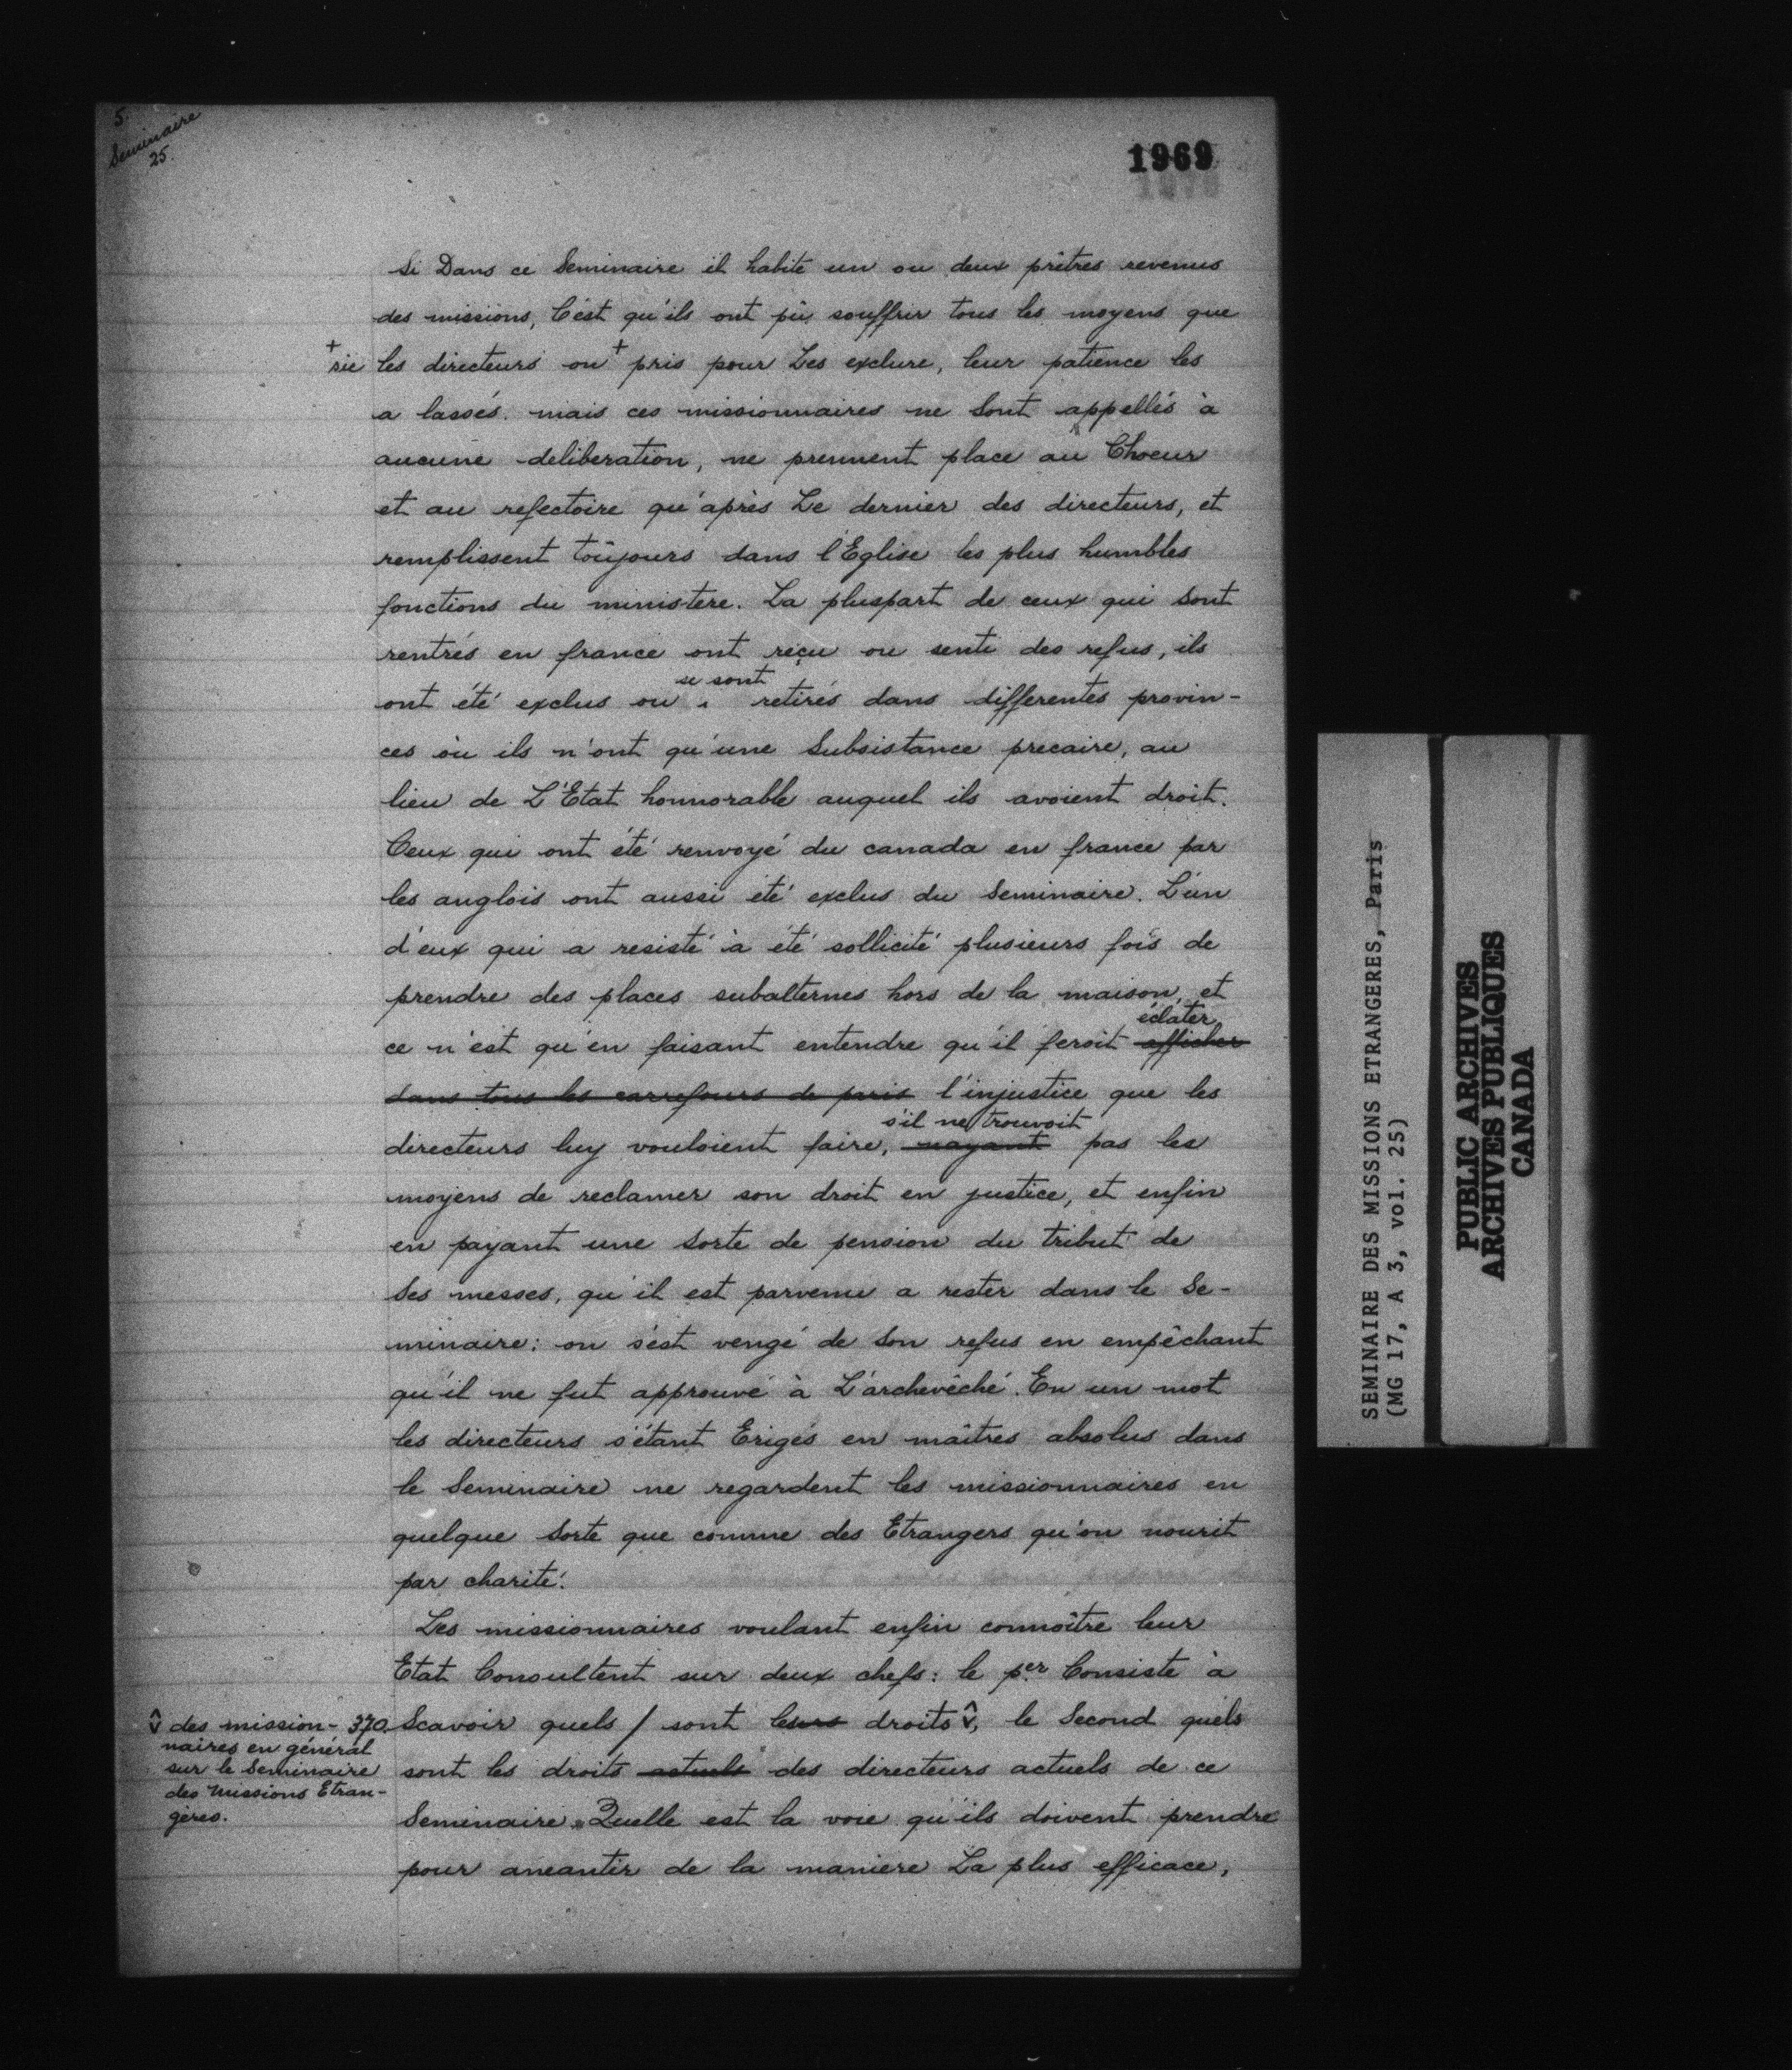 5.
Seminaire
25.
1969
Si Dans ce Seminaire il habite un ou deux prêtres revenus
des missions, C'est qu'ils ont pû souffrir tous les moyens que
+ sic les directeurs on + pris pour Les exclure, leur patience les
a lassés. mais ces missionnaires ne Sont appellés à
aucune deliberation, ne prennent place au Choeur
et au refectoire qu'après Le dernier des directeurs, et
remplissent toûjours dans l'Eglise les plus humbles
fonctions du ministere. La pluspart de ceux qui Sont
rentrés en france ont reçu ou senti des refus, ils
se sont
ont été exclus ou ^ retirés dans differentes provin-
ces où ils n'ont qu'une Subsistance precaire, au
lieu de L'Etat honnorable auquel ils avoient droit.
Ceux qui ont été renvoyé du canada en france par
les anglois ont aussi été exclus du Seminaire. L'un
d'eux qui a resisté à été sollicité plusieurs fois de
prendre des places subalternes hors de la maison, et
éclater
ce n'est qu'en faisant entendre qu'il feroit afficher
dans tous les carrefours de paris l'injustice que les
s'il ne trouvoit
directeurs luy vouloient faire, nayant pas les
moyens de reclamer son droit en justice, et enfin
en payant une Sorte de pension du tribut de
Ses messes, qu'il est parvenu a rester dans le Se-
minaire: on s'est vengé de Son refus en empêchant
qu'il ne fut approuvé à L'archevêché. En un mot
les directeurs s'étant Erigés en maîtres absolus dans
le Seminaire ne regardent les missionnaires en
quelque Sorte que comme des Etrangers qu'on nourit
par charité.
Les missionnaires voulant enfin connoître leur
Etat Consultent sur deux chefs: le per Consiste à
370. Scavoir quels / sont leurs droits, le Second quels
sont les droits actuels des directeurs actuels de ce
Seminaire. Quelle est la voie qu'ils doivent prendre
pour aneantir de la maniere La plus efficace,
des mission-
naires en général
sur le Seminaire
des Missions Etran-
gères.
SEMINAIRE DES MISSIONS ETRANGERES, Paris
(MG 17, A 3, vol. 25)
PUBLIC ARCHIVES
ARCHIVES PUBLIQUES
CANADA